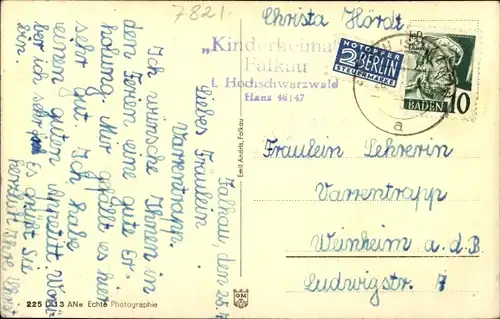 7821
Christa Hördt
„Kinderheimat
Falkau
i. Hochschwarzwald
Haus 46/47
NOTOPFER
2 BERLIN
STEUERMARKE
BADEN 10
a
Falkau, den 25.
Liebes Fräulein
Varrentrapp
Ich wünsche Ihnen in
den Ferien eine gute Er-
holung. Mir gefällt es hier
sehr gut. Ich habe
einen guten Appetitt.
ich sehr
Es grüßt Sie
herzlich Ihre
Fräulein Lehrerin
Varrentrapp
Weinheim a.d.B.
Ludwigstr. 7
Emil Andris, Falkau
225 D 13 ANe Echte Photographie